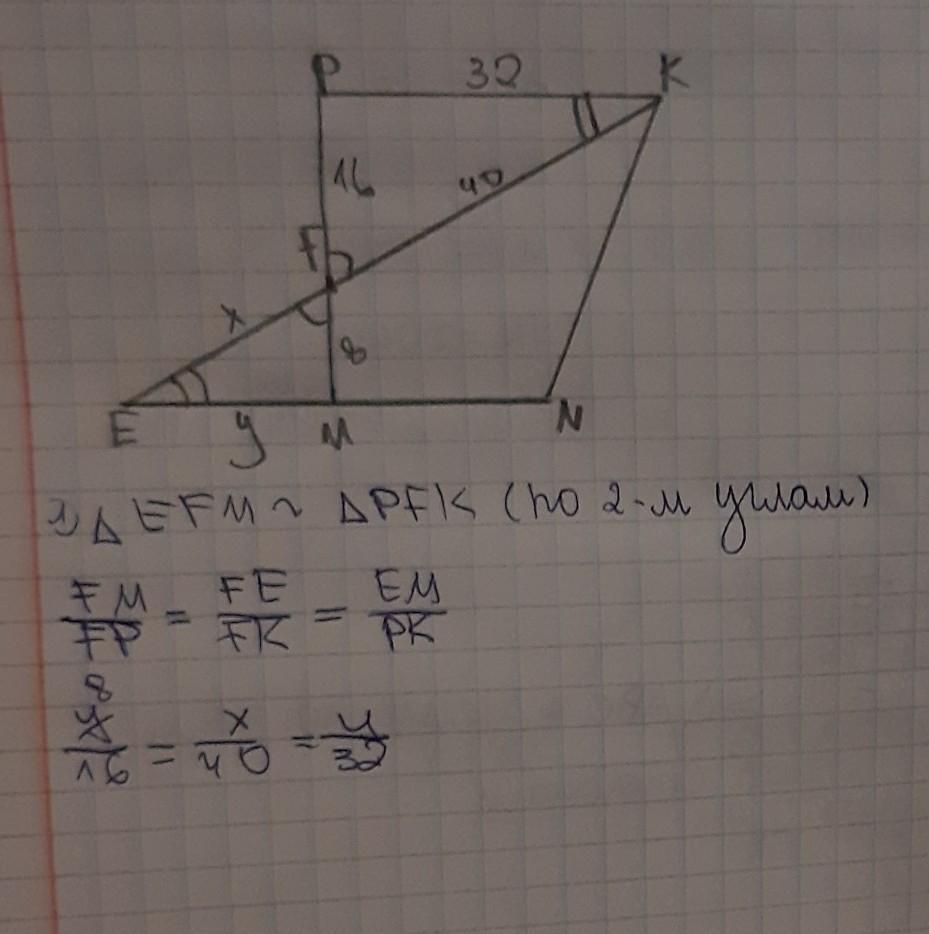 P 32 K
16
40
F
x
8
E y M N
1) △ EFM ~ △PFK (по 2-м углам)
FM/FP = FE/FK = EM/PK
8
16 = x/40 = y/32